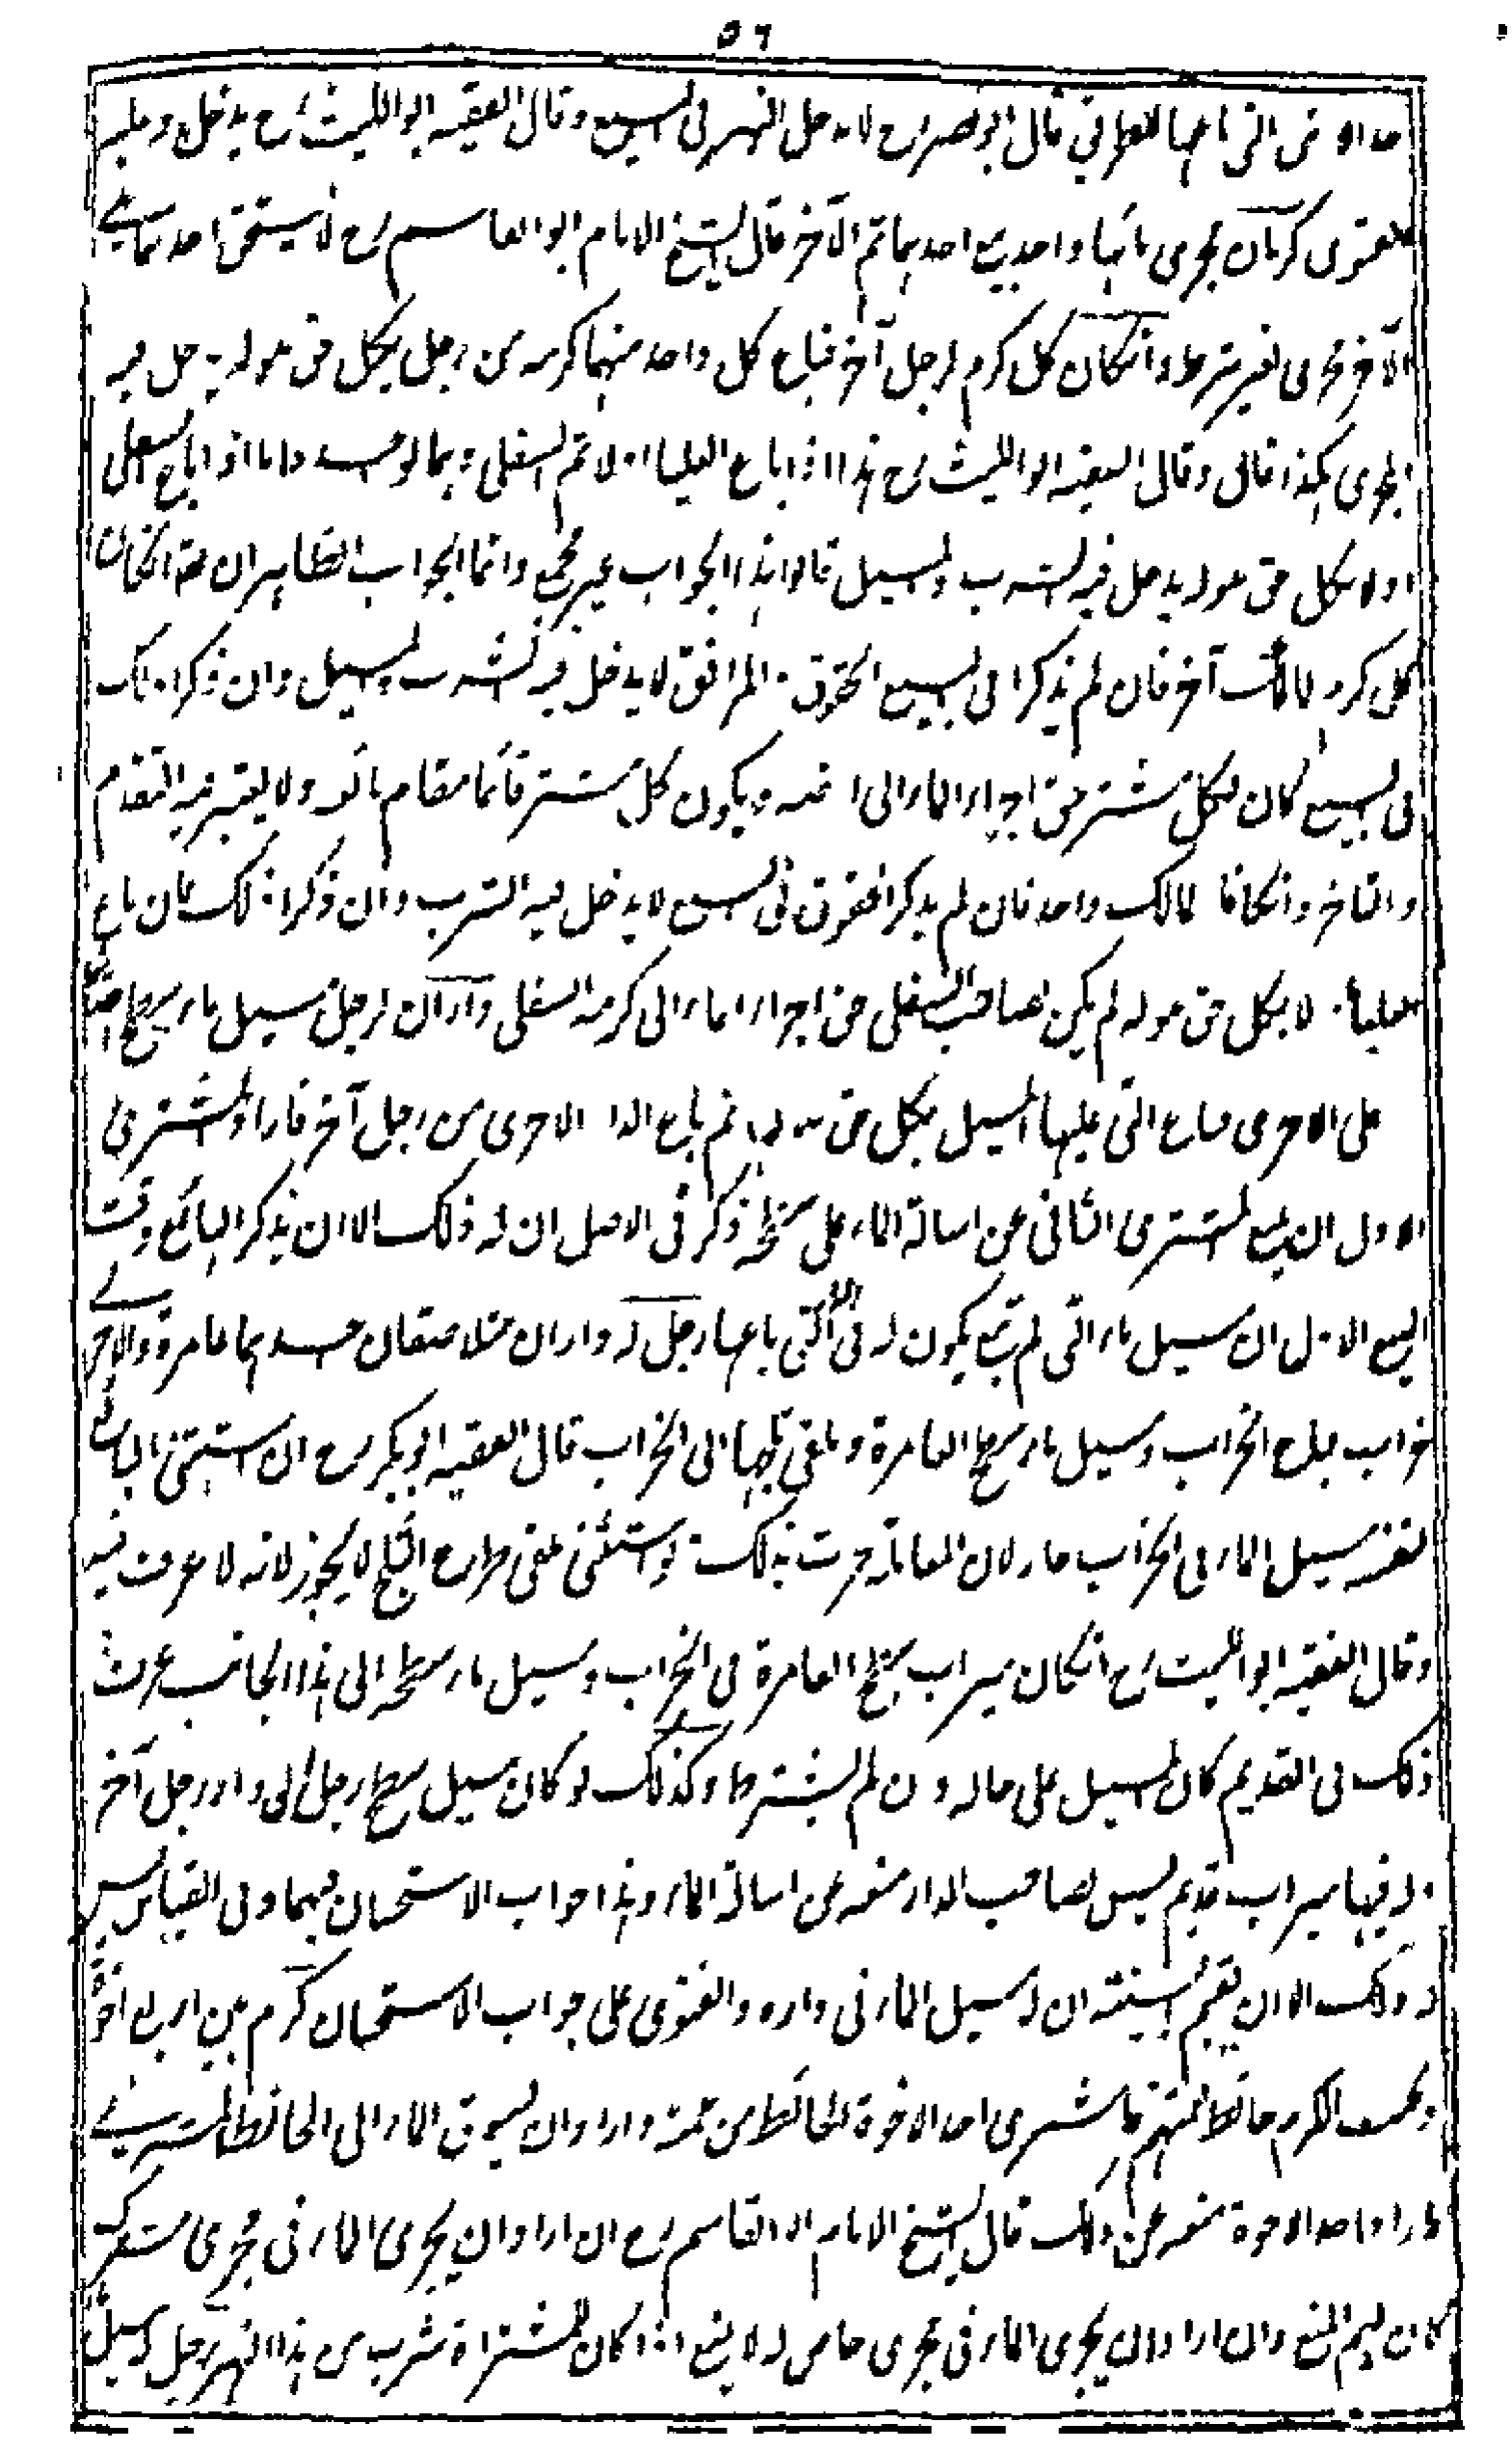 ٥٦
قال ابو نصر رح لا يدخل النهر في البيع وقال الفقيه ابو الليث رح يدخل وعليه
الفتوى كرمان مجرى مائهما واحد بيع احدهما ثم الآخر قال الشيخ الامام ابو القاسم رح لا يستحق احدهما في
الآخر مجرى بغير شرط وانكان كل كرم لرجل آخر فباع كل واحد منهما كرمه من رجل بكل حق هو له يدخل فيه
المجرى هكذا قال وقال الفقيه ابو الليث رح هذا اذا باع العليا اولا ثم السفلى واما اذا باع السفلى
اولا بكل حق هو له يدخل فيه الشرب والمسيل قالوا هذا الجواب غير صحيح وانما الجواب الظاهر ان انكان
كل كرم لمالك آخر فان لم يذكرا في البيع الحقوق والمرافق لا يدخل فيه الشرب والمسيل وان ذكرا ذلك
في البيع كان لكل مشتر حق اجراء الماء الى ويكون كل مشتر قائما مقام بائعه ولا يعتبر فيه التقدم
والتاخر وانكانا لمالك واحد فان لم يذكر الحقوق في البيع لا يدخل فيه الشرب وان ذكرا ذلك فان باع
العليا اولا بكل حق هو له لم يكن لصاحب السفلى حق اجراء الماء الى كرمه السفلى داران لرجل مسيل ماء سطح احدهما
على الاخرى فباع التي عليها المسيل بكل حق هو لها ثم باع الدار الاخرى من رجل آخر فاراد المشتري
الاول ان يمنع المشتري الثاني عن اسالة الماء على سطحه ذكر في الاصل ان له ذلك الا ان يذكر البائع وقت
البيع الاول ان مسيل ماء التي لم تبع يكون له في التي باعها رجل له داران متلاصقان احدهما عامرة والاخرى
خراب فباع الخراب ومسيل ماء سطح العامرة وملقى ثلجها الى الخراب قال الفقيه ابو بكر رح ان استثنى البائع
لنفسه مسيل الماء في الخراب جاز لان العادة جرت بذلك ولو استثنى ملقى طرح الثلج لا يجوز لانه لا عرف فيه
وقال الفقيه ابو الليث رح انكان ميزاب سطح العامرة في الخراب ومسيل ماء سطحه الى هذا الجانب عرف
ذلك في القديم كان المسيل على حاله وان لم يشترط وكذلك لو كان مسيل سطح رجل الى دار رجل آخر
وله فيها ميزاب قديم ليس لصاحب الدار منعه عن اسالة الماء وهذا جواب الاستحسان فيهما وفي القياس ليس
له ذلك الا ان يقيم البينة ان له مسيل الماء في داره والفتوى على جواب الاستحسان كرم بين اربع اخوة
وتحت الكرم حائط فاشترى احد الاخوة الحائط من واراد ان يسوق الماء الى الحائط المشترى
فاراد احد الاخوة منعه عن ذلك قال الشيخ الامام ابو القاسم رح ان اراد ان يجري الماء في مجرى مشترك
كان لهم المنع وان اراد ان يجري الماء في مجرى خاص له لا يمنع اذا كان للمشتراة شرب من هذا النهر رجل له مسيل